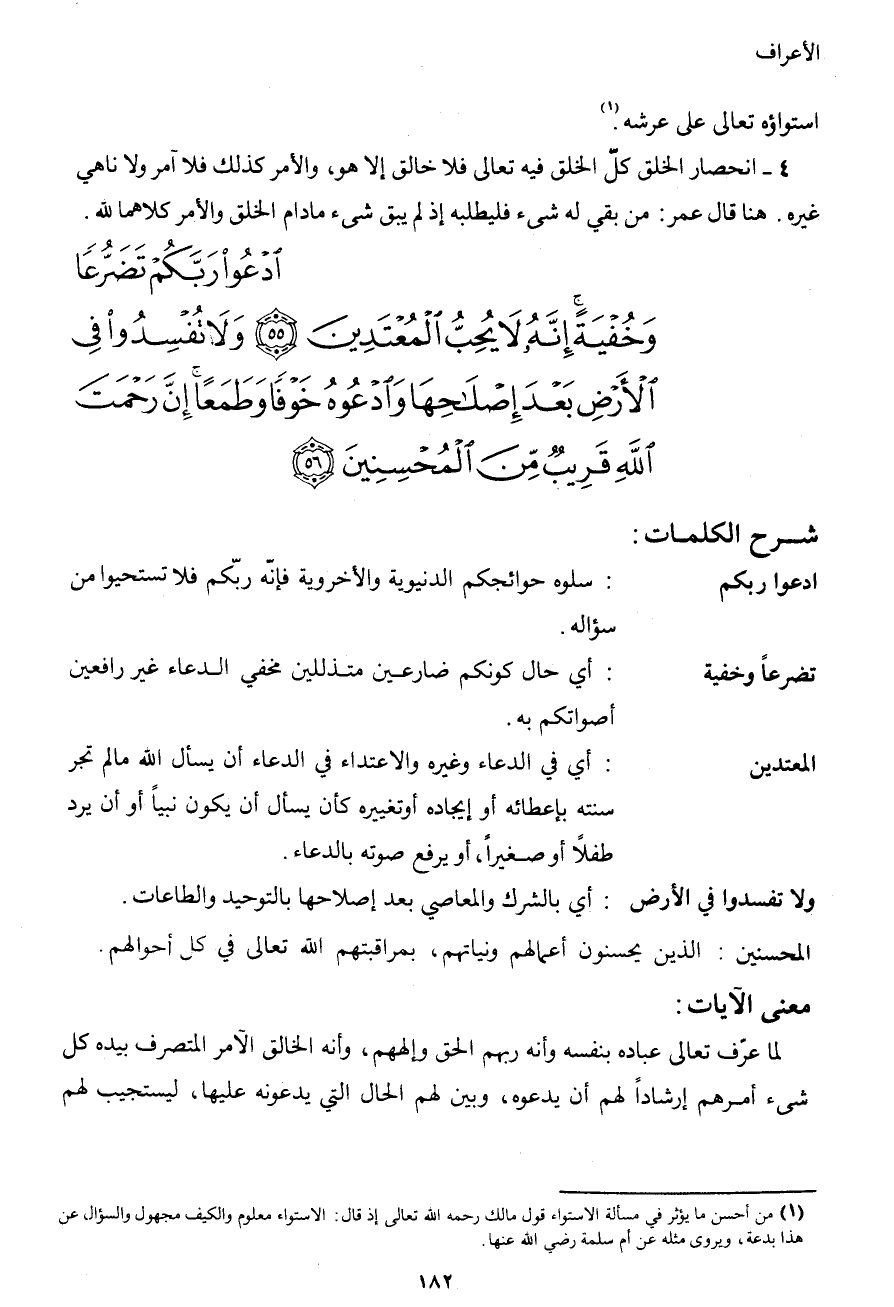 الأعراف
استواؤه تعالى على عرشه.(١)
٤ - انحصار الخلق كلّ الخلق فيه تعالى فلا خالق إلا هو، والأمر كذلك فلا آمر ولا ناهي
غيره. هنا قال عمر: من بقي له شىء فليطلبه إذ لم يبق شىء مادام الخلق والأمر كلاهما لله.
ٱدْعُوا۟ رَبَّكُمْ تَضَرُّعًا
وَخُفْيَةً ۚ إِنَّهُۥ لَا يُحِبُّ ٱلْمُعْتَدِينَ ۝٥٥ وَلَا تُفْسِدُوا۟ فِى
ٱلْأَرْضِ بَعْدَ إِصْلَـٰحِهَا وَٱدْعُوهُ خَوْفًا وَطَمَعًا ۚ إِنَّ رَحْمَتَ
ٱللَّهِ قَرِيبٌ مِّنَ ٱلْمُحْسِنِينَ ۝٥٦
شـرح الكلمـات:
ادعوا ربكم : سلوه حوائجكم الدنيوية والأخروية فإنّه ربّكم فلا تستحيوا من
سؤاله.
تضرعاً وخفية : أي حال كونكم ضارعـين متـذللين مخفي الـدعاء غير رافعين
أصواتكم به.
المعتدين : أي في الدعاء وغيره والاعتداء في الدعاء أن يسأل الله مالم تجر
سنته بإعطائه أو إيجاده أوتغييره كأن يسأل أن يكون نبياً أو أن يرد
طفلًا أو صـغيراً، أو يرفع صوته بالدعاء.
ولا تفسدوا في الأرض : أي بالشرك والمعاصي بعد إصلاحها بالتوحيد والطاعات.
المحسنين : الذين يحسنون أعمالهم ونياتهم، بمراقبتهم الله تعالى في كل أحوالهم.
معنى الآيات:
لما عرّف تعالى عباده بنفسه وأنه ربهم الحق وإلههم، وأنه الخالق الآمر المتصرف بيده كل
شىء أمـرهم إرشاداً لهم أن يدعوه، وبين لهم الحال التي يدعونه عليها، ليستجيب لهم
(١) من أحسن ما يؤثر في مسألة الاستواء قول مالك رحمه الله تعالى إذ قال: الاستواء معلوم والكيف مجهول والسؤال عن
هذا بدعة، ويروى مثله عن أم سلمة رضي الله عنها.
١٨٢